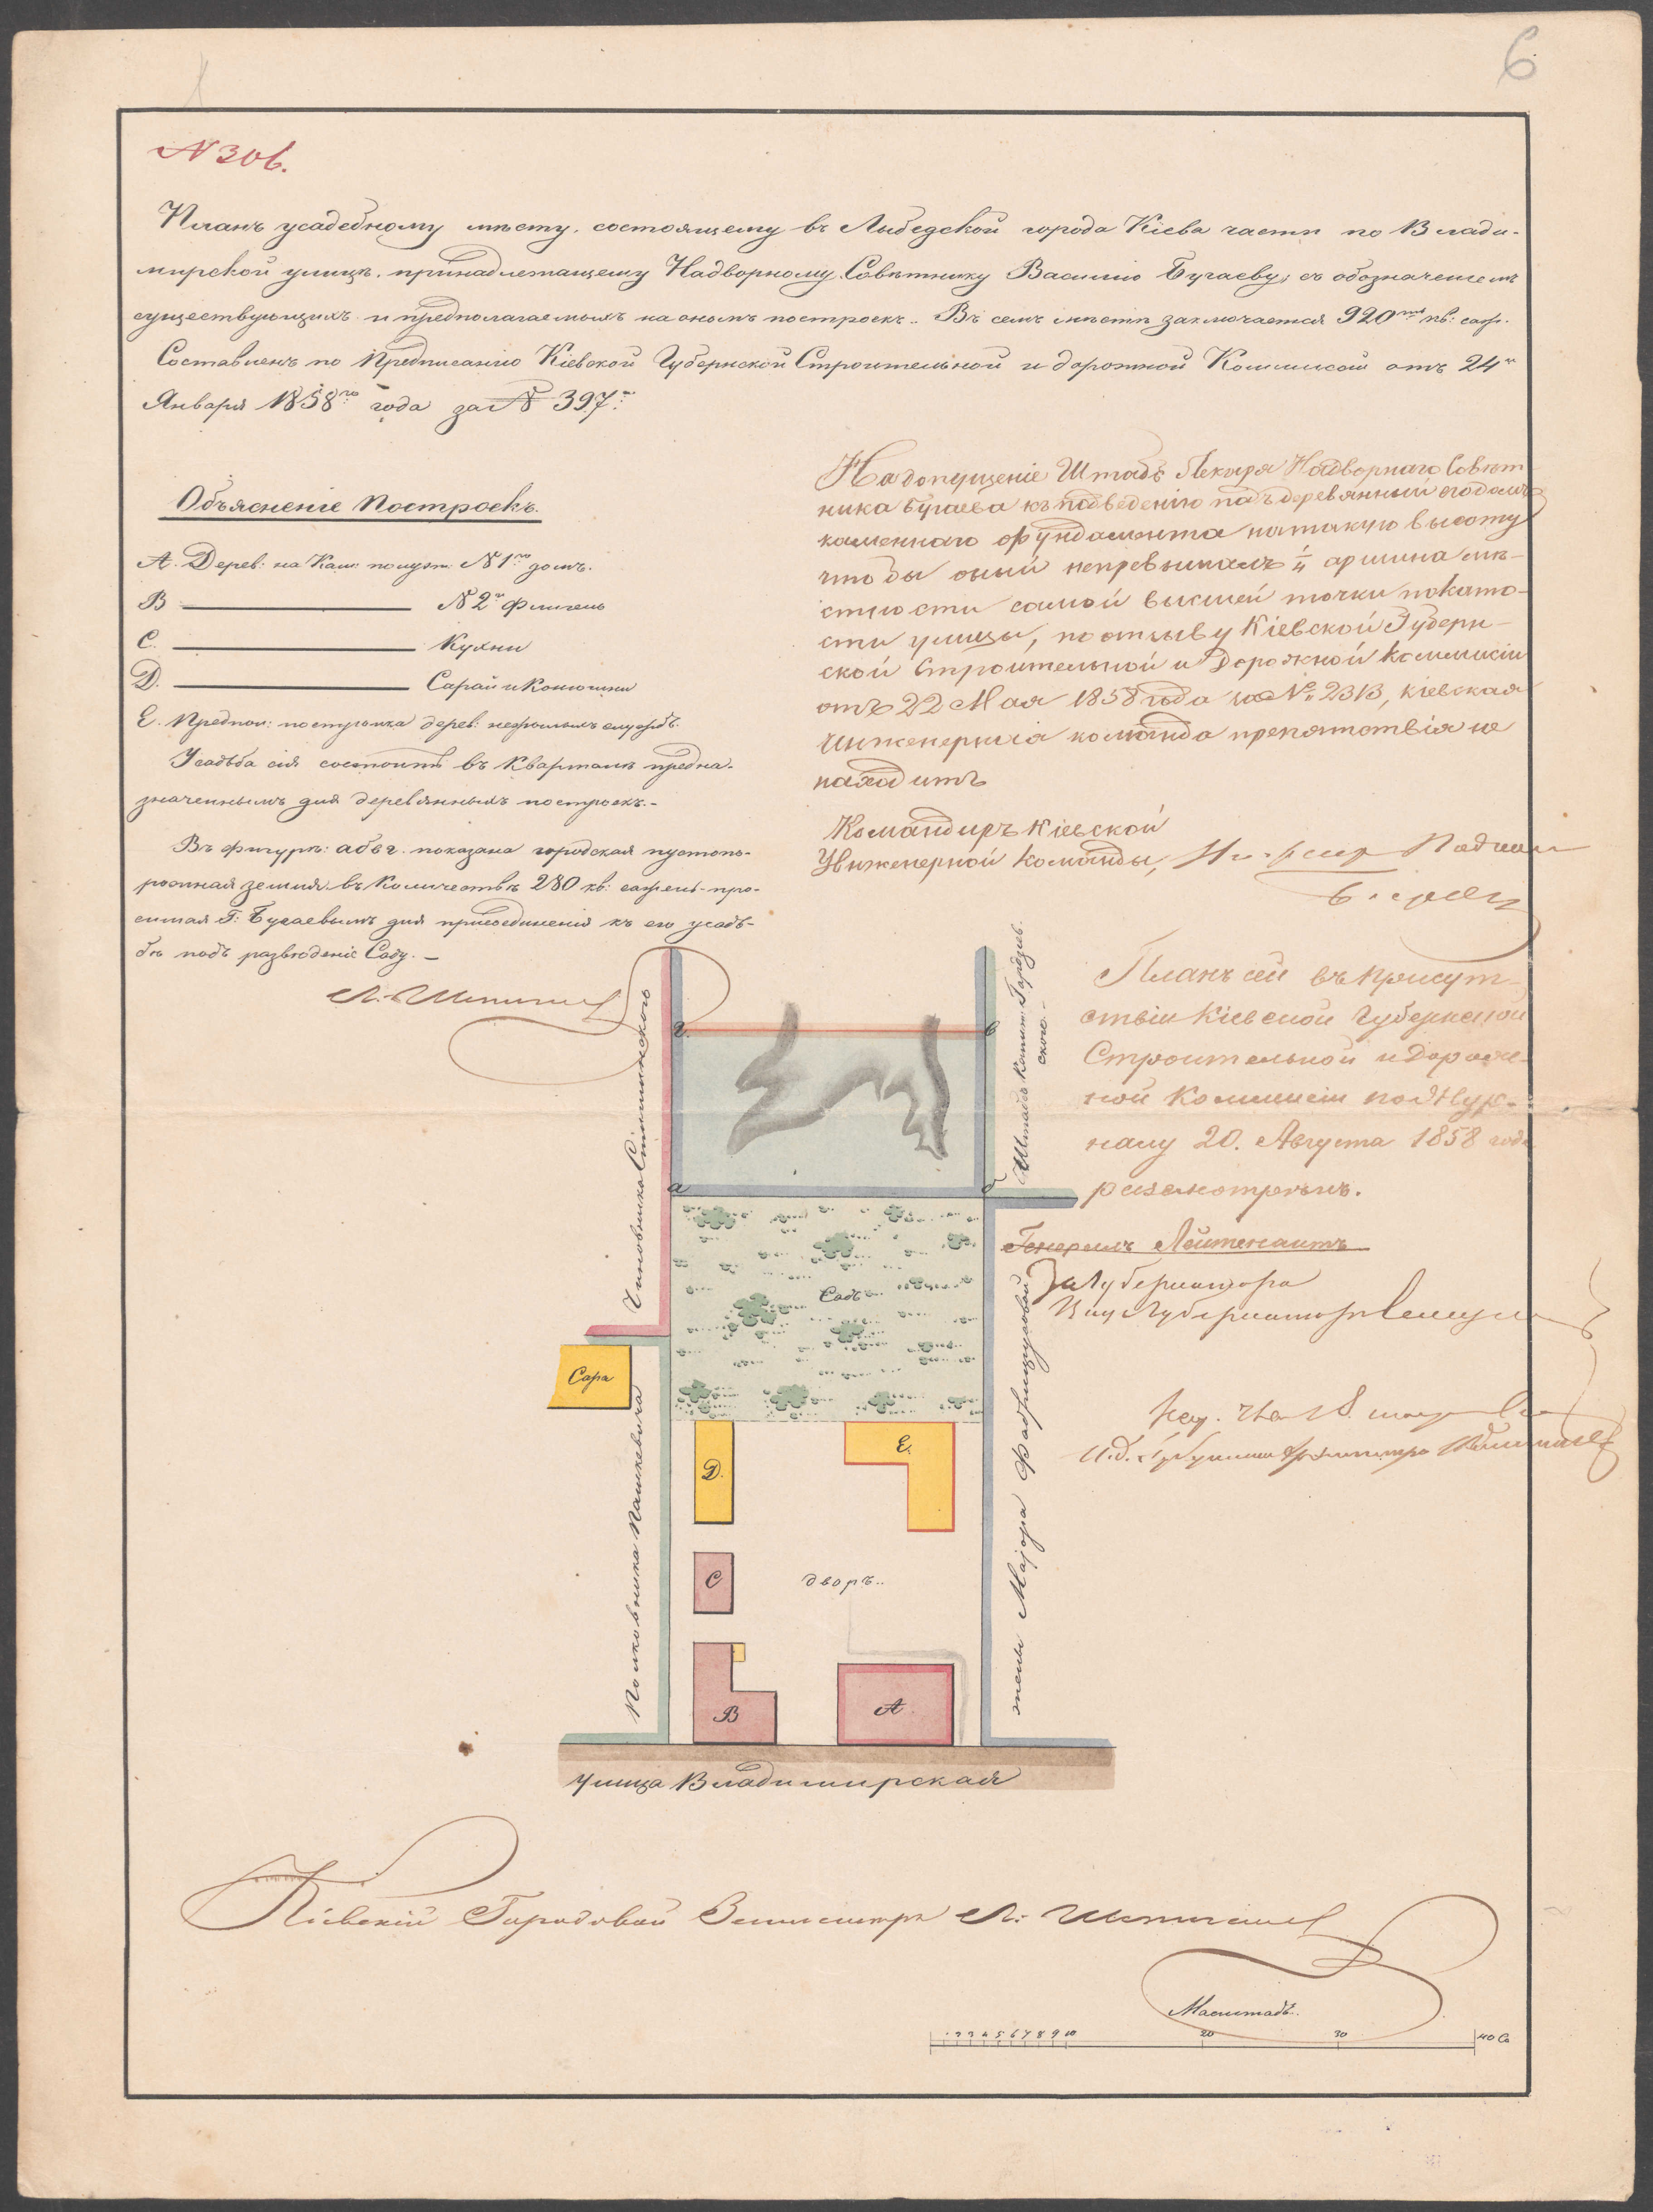 6
N 306.
Планъ усадебному мѣсту, состоящему въ Лыбедской города Кіева части по Влади-
мирской улицѣ, принадлежащему Надворному Совѣтнику Василію Бугаеву, съ обозначеніемъ
существующихъ и предполагаемыхъ на ономъ построекъ. Въ семъ мѣстѣ заключается 920 кв: саж.
Составленъ по Предписанію Кіевской Губернской Строительной и дорожной Коммисіи отъ 24го
Января 1858го года за N 397.
Объясненіе Построекъ.
А. Дерев: на Кам: полуэт: N 1го домъ.
В N 2го флигель
С. Кухни
D. Сарай и Конюшни
Е. Предпол: постройка дерев: нежилыхъ службъ.
Усадьба сія состоитъ въ Кварталѣ предна-
значенномъ для деревянныхъ построекъ.-
Въ фигурѣ: абвг. показана городская пустопо-
рожная земля въ Количествѣ 280 кв: сажень про-
симая Г: Бугаевымъ для присоединенія къ его усадь-
бѣ подъ разведеніе Саду. -
На допущеніе Штабъ Лекаря Надворнаго Совѣт-
ника Бугаева къ подведенію подъ деревянный домъ
каменнаго фундамента на такую высоту
чтобы оный непревышалъ аршина мѣ-
стности самой высшей точки покато-
сти улицы, по отзыву Кіевской Губерн-
ской Строительной и Дорожной Коммисіи
отъ 22 Мая 1858 года за №, Кіевская
Инженерная команда препятствія не
находитъ
Командиръ Кіевской
Инженерной Команды,
Планъ сей въ присут-
ствіи Кіевской Губернской
Строительной и Дорож-
ной Коммисіи по Жур-
налу 20. Августа 1858 года
разсмотрѣнъ.
Генералъ Лейтенантъ
За Губернатора
Вице Губернаторъ
Чиновника
Штабъ Капит:
г.
в
а
б
Садъ
Сара
Полковника Пашкевича
жены Маіора
D.
Е.
С
дворъ..
В
А.
улица Владимирская
Кіевскій Городовой Землемѣръ
Масштабъ..
1 2 3 4 5 6 7 8 9 10 20 30 40 Са